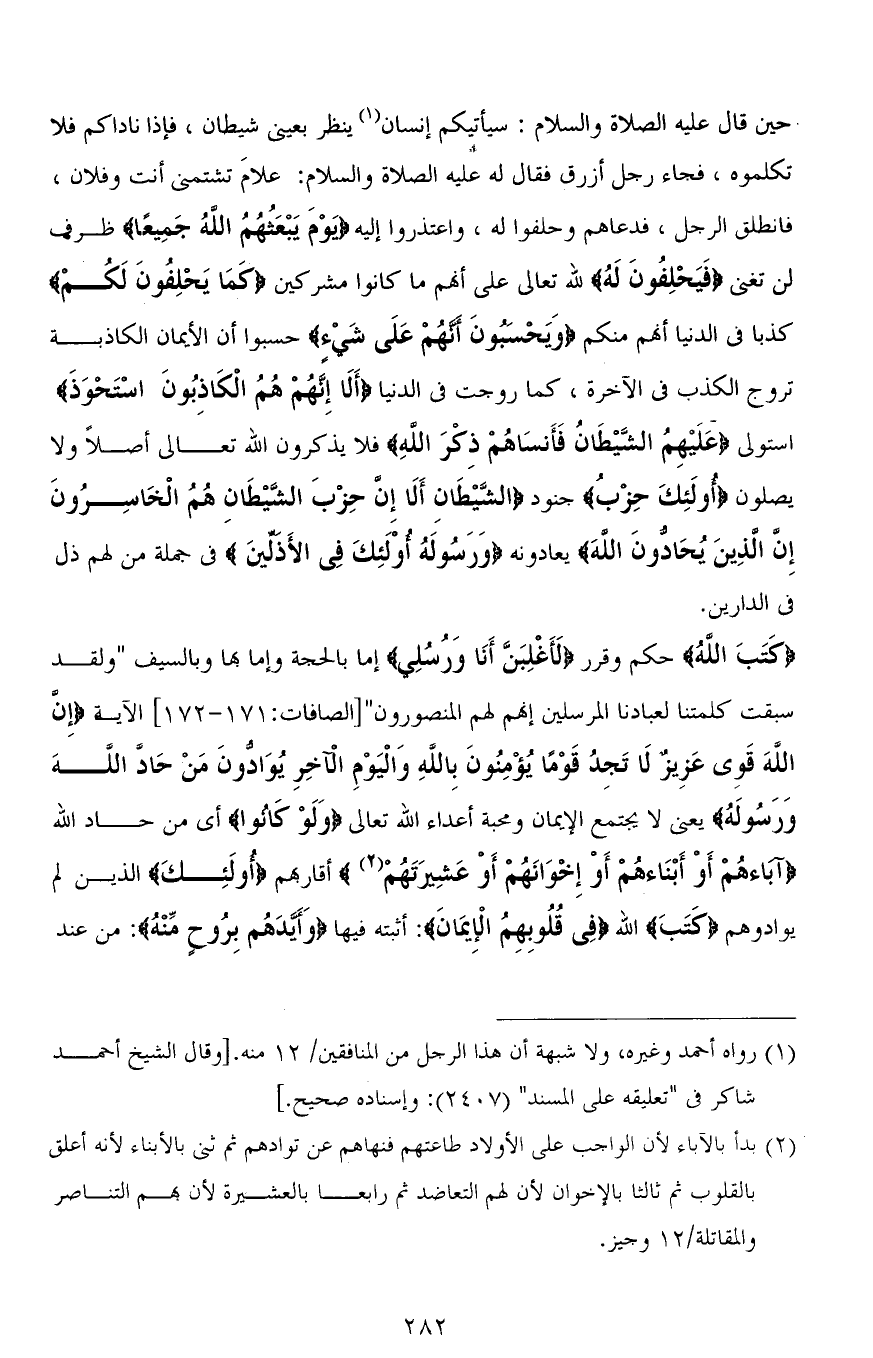 حين قال عليه الصلاة والسلام : سيأتيكم إنسان(١) ينظر بعينى شيطان ، فإذا ناداكم فلا
تكلموه ، فجاء رجل أزرق فقال له عليه الصلاة والسلام: علامَ تشتمنى أنت وفلان ،
فانطلق الرجل ، فدعاهم وحلفوا له ، واعتذروا إليه ﴿يَوْمَ يَبْعَثُهُمُ اللَّهُ جَمِيعًا﴾ ظرف
لن تغنى ﴿فَيَحْلِفُونَ لَهُ﴾ لله تعالى على أنهم ما كانوا مشركين ﴿كَمَا يَحْلِفُونَ لَكُمْ﴾
كذبا فى الدنيا أنهم منكم ﴿وَيَحْسَبُونَ أَنَّهُمْ عَلَى شَيْءٍ﴾ حسبوا أن الأيمان الكاذبة
تروج الكذب فى الآخرة ، كما روجت فى الدنيا ﴿أَلَا إِنَّهُمْ هُمُ الْكَاذِبُونَ اسْتَحْوَذَ﴾
استولى ﴿عَلَيْهِمُ الشَّيْطَانُ فَأَنسَاهُمْ ذِكْرَ اللَّهِ﴾ فلا يذكرون الله تعالى أصلاً ولا
يصلون ﴿أُولَئِكَ حِزْبُ﴾ جنود ﴿الشَّيْطَانِ أَلَا إِنَّ حِزْبَ الشَّيْطَانِ هُمُ الْخَاسِرُونَ
إِنَّ الَّذِينَ يُحَادُّونَ اللَّهَ﴾ يعادونه ﴿وَرَسُولَهُ أُوْلَئِكَ فِي الأَذَلِّينَ ﴾ فى جملة من لهم ذل
فى الدارين.
﴿كَتَبَ اللَّهُ﴾ حكم وقرر ﴿لَأَغْلِبَنَّ أَنَا وَرُسُلِي﴾ إما بالحجة وإما بها وبالسيف "ولقد
سبقت كلمتنا لعبادنا المرسلين إنهم لهم المنصورون"[الصافات:١٧١-١٧٢] الآية ﴿إِنَّ
اللَّهَ قَوِى عَزِيزٌ لَا تَجِدُ قَوْمًا يُؤْمِنُونَ بِاللَّهِ وَالْيَوْمِ الْآخِرِ يُوَادُّونَ مَنْ حَادَّ اللَّهَ
وَرَسُولَهُ﴾ يعنى لا يجتمع الإيمان ومحبة أعداء الله تعالى ﴿وَلَوْ كَانُوا﴾ أى من حاد الله
﴿آبَاءهُمْ أَوْ أَبْنَاءهُمْ أَوْ إِخْوَانَهُمْ أَوْ عَشِيرَتَهُمْ(٢) ﴾ أقاربهم ﴿أُولَئِكَ﴾ الذين لم
يوادوهم ﴿كَتَبَ﴾ الله ﴿فِي قُلُوبِهِمُ الْإِيمَانَ﴾: أثبته فيها ﴿وَأَيَّدَهُم بِرُوحٍ مِّنْهُ﴾: من عند
(١) رواه أحمد وغيره، ولا شبهة أن هذا الرجل من المنافقين/ ١٢ منه.[وقال الشيخ أحمد
شاكر فى "تعليقه على المسند" (٢٤٠٧): وإسناده صحيح.]
(٢) بدأ بالآباء لأن الواجب على الأولاد طاعتهم فنهاهم عن توادهم ثم ثنى بالأبناء لأنه أعلق
بالقلوب ثم ثالثا بالإخوان لأن لهم التعاضد ثم رابعا بالعشيرة لأن بهم التناصر
والمقاتلة/١٢ وجيز.
٢٨٢